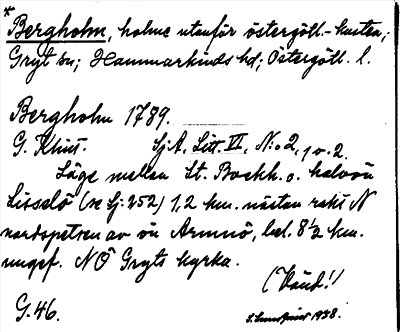 * Bergholm, holme utanför östergötl.-kusten;
Gryt sn; Hammarkinds hd; Östergötl. l.
Bergholm 1789.
G. Klint. Sj.A. Litt. VI, N:o 2, 1 o. 2.
Läge mellan St. Bockh. o. halvön
Lisselö (se Sj: 252) 1,2 km. nästan rakt N
nordspetsen av ön Armnö, bel. 8½ km.
ungef. NÖ Gryts kyrka.
(Känt!)
G. 46.
1938.